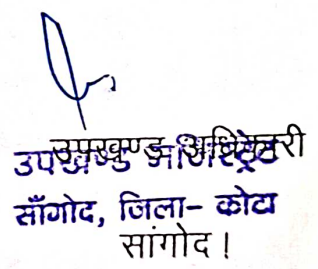 उपखण्ड अधिकारी
उपखण्ड मजिस्ट्रेट
साँगोद, जिला- कोटा
सांगोद !